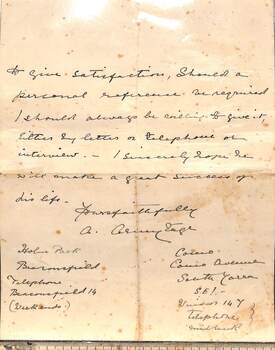 to give satisfaction, Should a
personal reference be required
I should always be willing to give it
either by letter or telephone or
interview. - I sincerely hope he
will make a great success of
his life.
Yours faithfully
A.
Park
Beaconsfield
Telephone
Beaconsfield 14
(Weekends)
Avenue
South Yarra
S.E.1.-
Windsor 147
Telephone
midweek